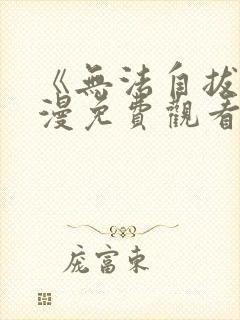 《無法自拔
漫免費觀看
庞富東